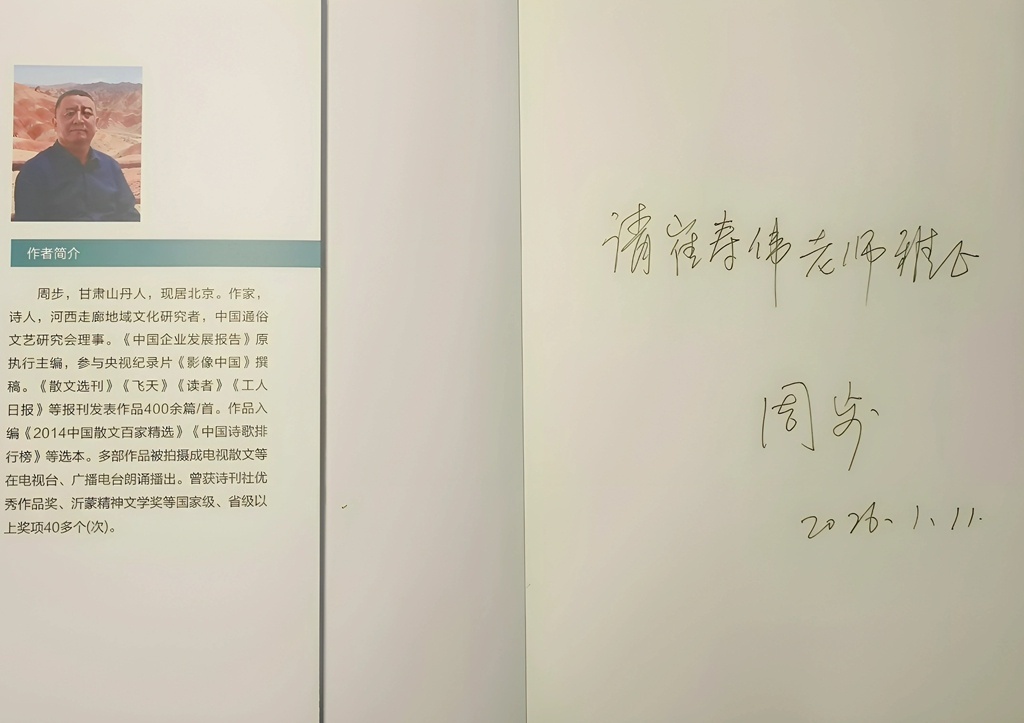 作者简介
周步，甘肃山丹人，现居北京。作家，
诗人，河西走廊地域文化研究者，中国通俗
文艺研究会理事。《中国企业发展报告》原
执行主编，参与央视纪录片《影像中国》撰
稿。《散文选刊》《飞天》《读者》《工人
日报》等报刊发表作品400余篇/首。作品入
编《2014中国散文百家精选》《中国诗歌排
行榜》等选本。多部作品被拍摄成电视散文等
在电视台、广播电台朗诵播出。曾获诗刊社优
秀作品奖、沂蒙精神文学奖等国家级、省级以
上奖项40多个(次)。
请崔寿伟老师雅正
周步
2026.1.11.